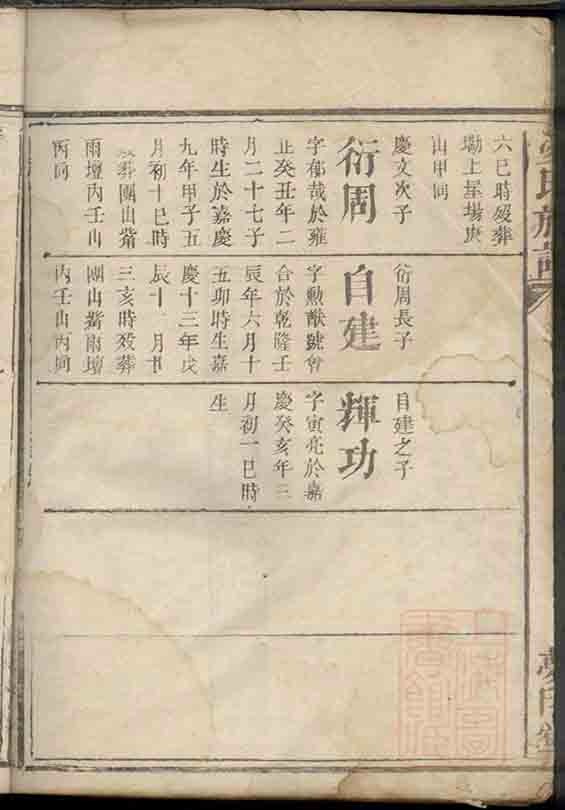 六巳時歿葬
塲上星塲庚
山甲向
慶文次子
衍周
字郁哉於雍
正癸丑年二
月二十七子
時生於嘉慶
九年甲子五
月初十巳時
歿葬團山嘴
雨壇丙壬山
丙向
衍周長子
自建
字勲猷號會
合於乾隆壬
辰年六月十
五卯時生嘉
慶十三年戊
辰十一月廿
三亥時歿葬
團山嘴雨壇
內壬山丙向
自建之子
輝功
字寅亮於嘉
慶癸亥年三
月初一巳時
生
氏族